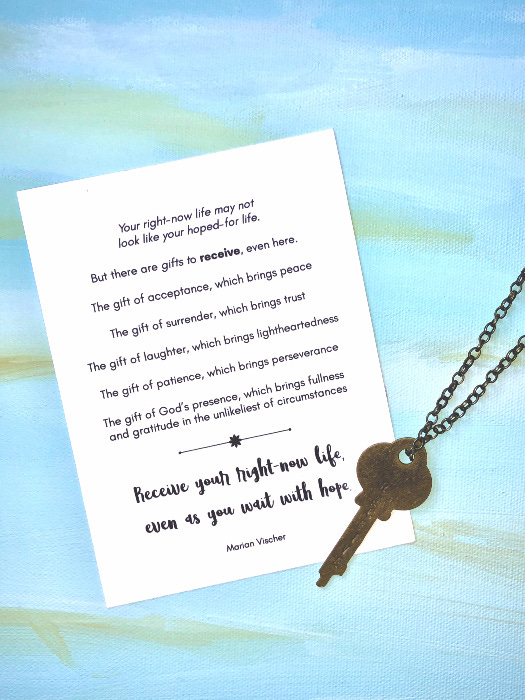 Your right-now life may not
look like your hoped-for life.
But there are gifts to receive, even here.
The gift of acceptance, which brings peace
The gift of surrender, which brings trust
The gift of laughter, which brings lightheartedness
The gift of patience, which brings perseverance
The gift of God's presence, which brings fullness
and gratitude in the unlikeliest of circumstances
Receive your right-now life,
even as you wait with hope.
Marian Vischer